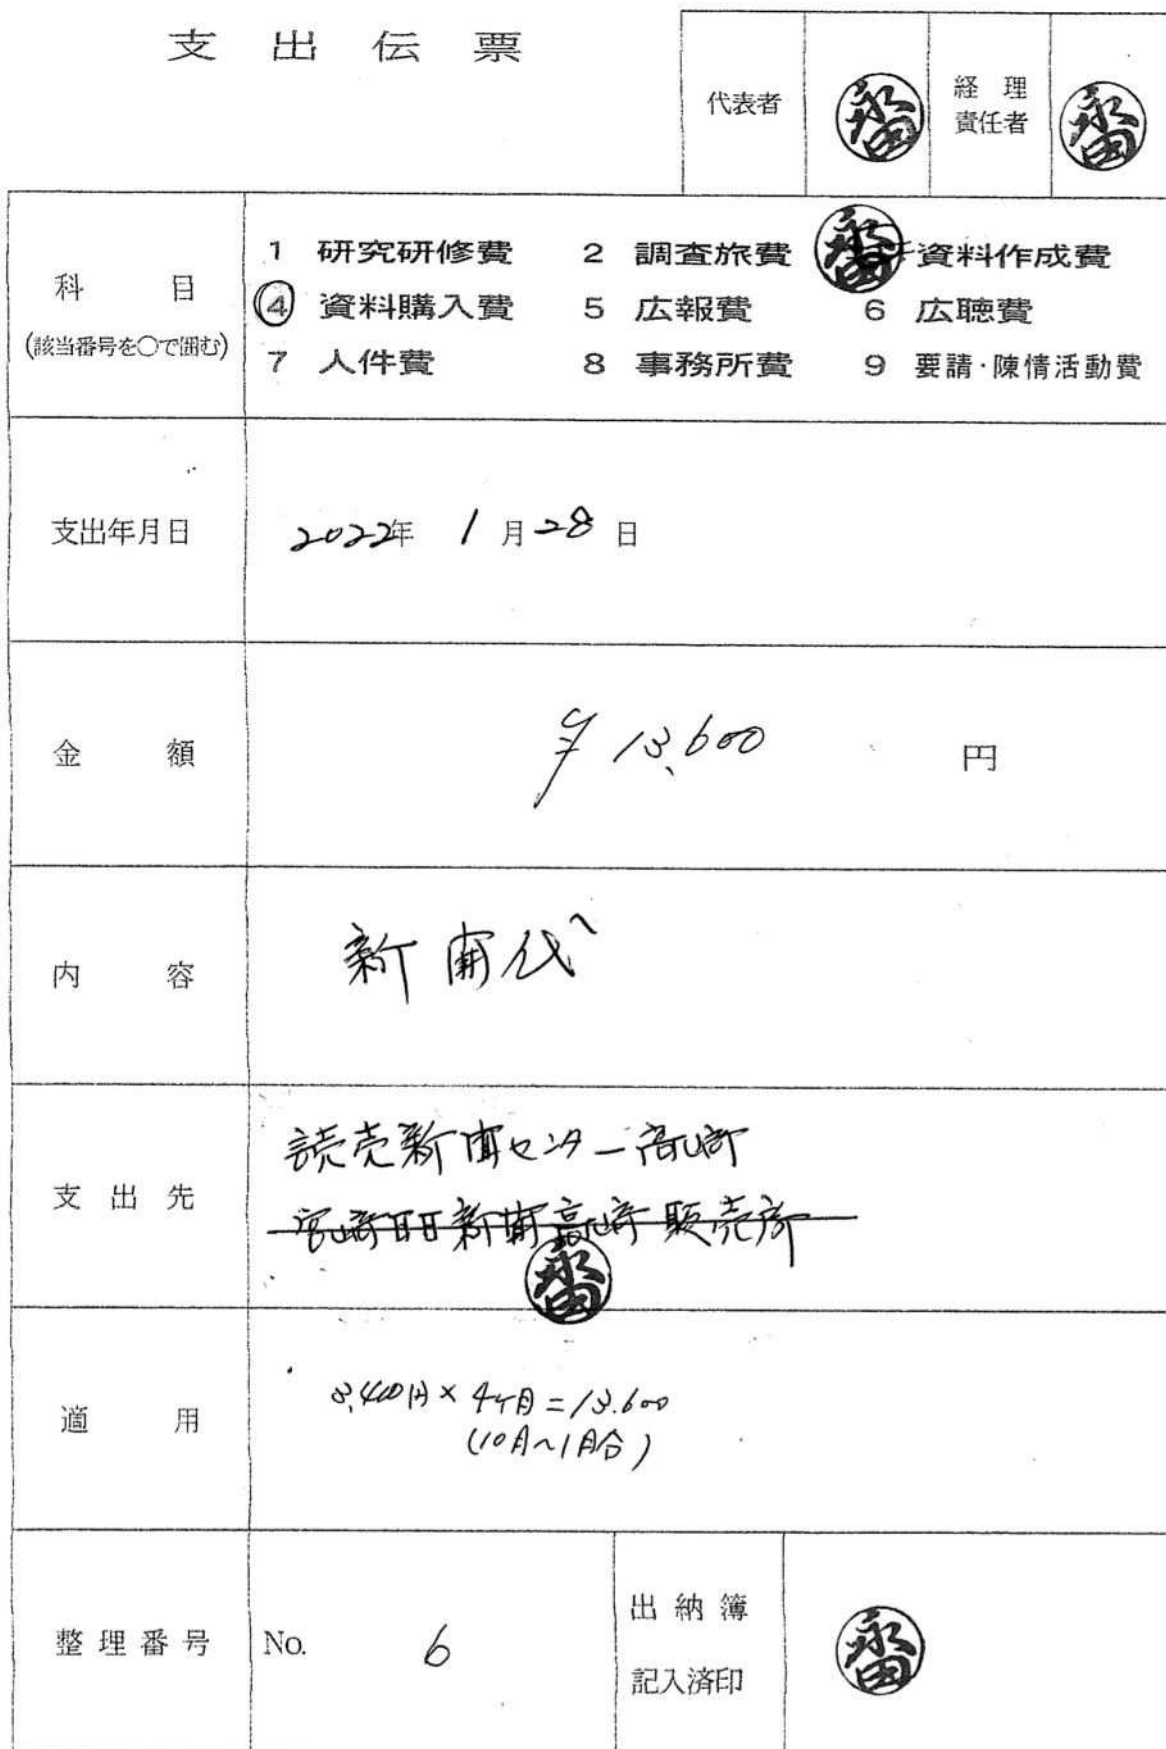 支出伝票
代表者
経理
責任者
科目
(該当番号を○で囲む)
1 研究研修費 2 調査旅費 資料作成費
④ 資料購入費 5 広報費 6 広聴費
7 人件費 8 事務所費 9 要請・陳情活動費
支出年月日 2022年 1月28日
金額 ¥13,600 円
内容 新聞代
支出先 読売新聞センター高崎
宮崎日日新聞高崎販売所
適用 3,400円×4ヶ月=13.600
(10月~1月分)
整理番号 No. 6
出納簿
記入済印